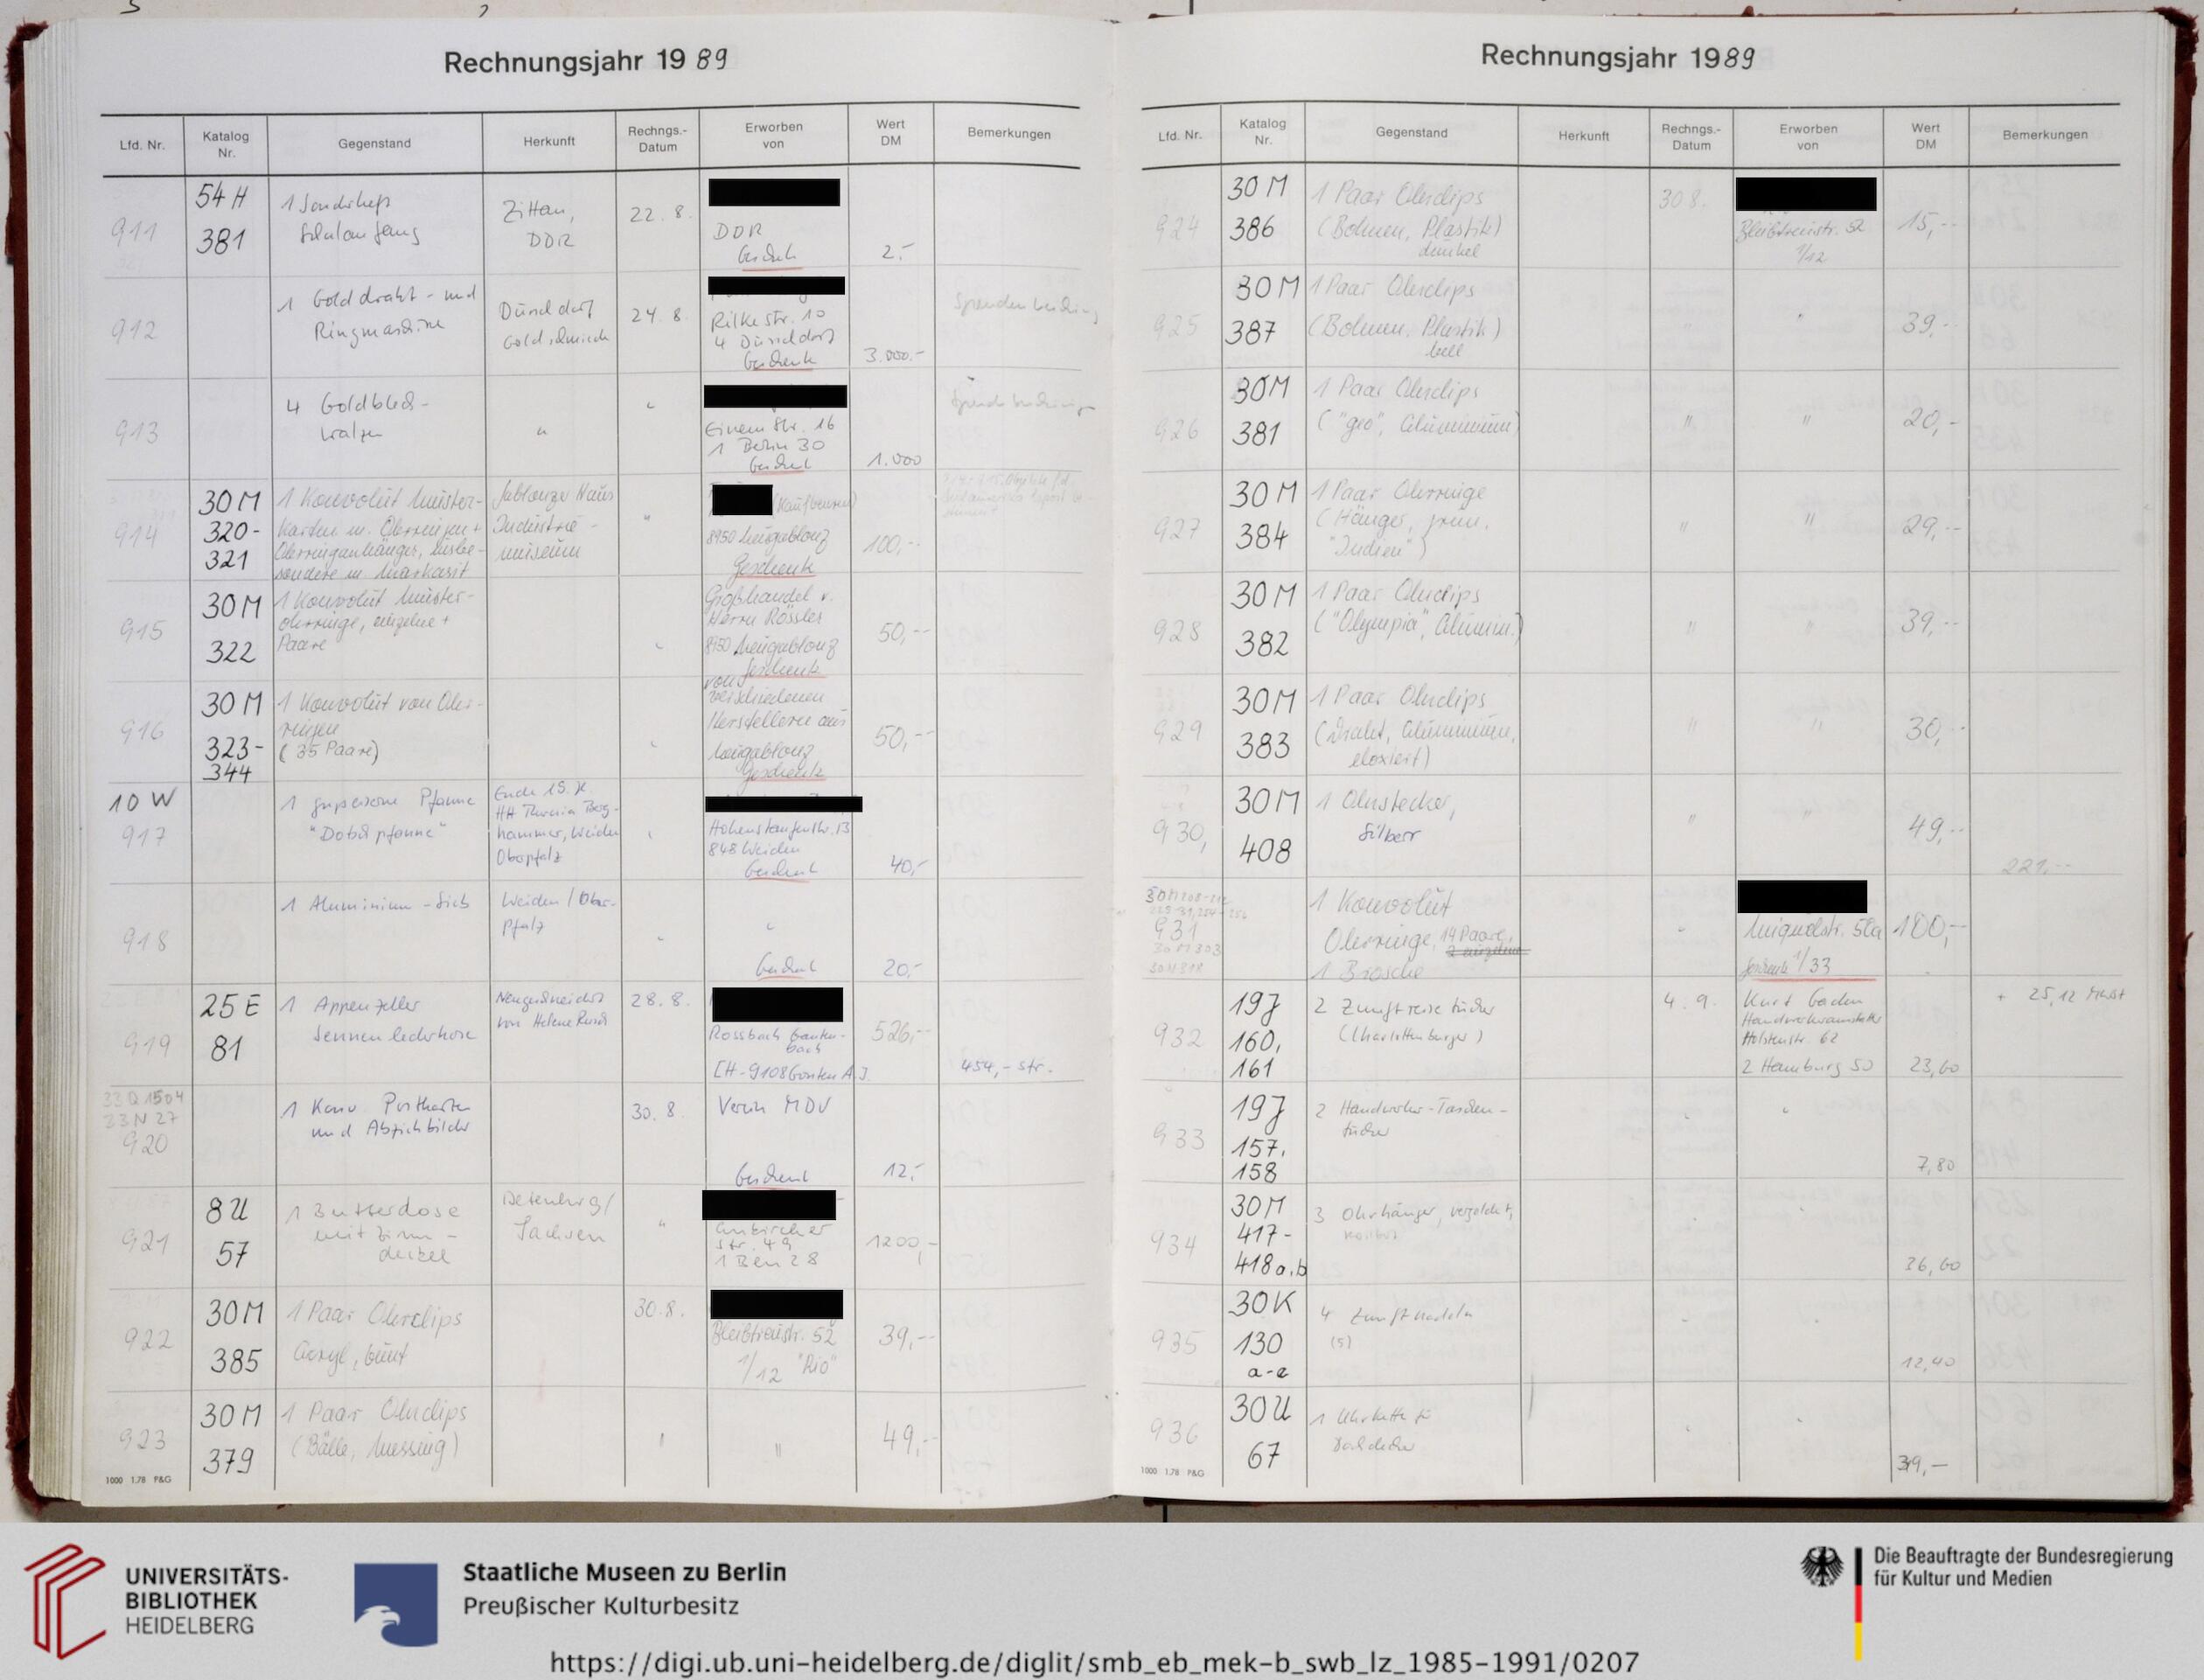 Rechnungsjahr 1989
Lfd. Nr.
Katalog
Nr.
Gegenstand
Herkunft
Rechngs.-
Datum
Erworben
von
Wert
DM
Bemerkungen
911
54 H
381
1 Sonderheft
Schulanfang
Zittau,
DDR
22. 8.
DDR
Geschenk
2.-
912
1 Golddraht- und
Ringmaschine
Düsseldorf
Goldschmiede
24. 8.
Rilkestr. 10
4 Düsseldorf
Geschenk
3.000.-
913
4 Goldblech-
walzen
"
"
Einemstr. 16
1 Berlin 30
Geschenk
1.000
914
30 M
320-
321
1 Konvolut Muster-
karten m. Ohrringen +
Ohrringanhänger, insbe-
sondere m. Markasit
Gablonzer Haus
Industrie-
museum
"
(Kaufbeuren)
8950 Neugablonz
Geschenk
100,--
915
30 M
322
1 Konvolut Muster-
ohrringe, einzelne +
Paare
"
Großhandel v.
Herrn Rössler
8950 Neugablonz
Geschenk
50,--
916
30 M
323-
344
1 Konvolut von Ohr-
ringen
(35 Paare)
"
von
verschiedenen
Herstellern aus
Neugablonz
Geschenk
50,--
10 W
917
1 gusseiserne Pfanne
Ende 19. Jh.
hammer, Weiden
Oberpfalz
"
Hohenstaufenstr. 13
848 Weiden
Geschenk
40,-
918
1 Aluminium-Sieb
Weiden / Ober-
pfalz
"
"
Geschenk
20,-
919
25 E
81
1 Appenzeller
Sennenlederhose
von Helene
28. 8.
Rossbach Gonten-
bach
CH-9108 Gonten A.J.
526,--
454,- sfr.
33 Q 1504
33 N 27
920
1 Konv. Postkarten
und Abziehbilder
30. 8.
Verein MDV
Geschenk
12,-
921
8 U
57
1 Butterdose
mit Zinn-
deckel
Sachsen
"
str. 49
1 Berl 28
1200,-
922
30 M
385
1 Paar Ohrclips
Acryl, bunt
30.8.
Bleibtreustr. 52
1/12 "Rio"
39,--
923
30 M
379
1 Paar Ohrclips
(Bälle, Messing)
"
"
49,--
1000 1.78 P&G
Rechnungsjahr 1989
Lfd. Nr.
Katalog
Nr.
Gegenstand
Herkunft
Rechngs.-
Datum
Erworben
von
Wert
DM
Bemerkungen
924
30 M
386
1 Paar Ohrclips
(Bohnen, Plastik)
dunkel
30 8.
Bleibtreustr. 52
1/12
15,--
925
30 M
387
1 Paar Ohrclips
(Bohnen, Plastik)
hell
"
"
39,--
926
30 M
381
1 Paar Ohrclips
("geo", Aluminium)
"
"
20,-
927
30 M
384
1 Paar Ohrringe
(Hänger, grün,
"Indien")
"
"
29,--
928
30 M
382
1 Paar Ohrclips
("Olympia", Alumin.)
"
"
39,--
929
30 M
383
1 Paar Ohrclips
(Draht, Aluminium,
eloxiert)
"
"
30,--
930,
30 M
408
1 Ohrstecker,
Silber
"
"
49,--
221,--
931
30 M 303
1 Konvolut
Ohrringe, 19 Paare,
2 einzelne
1 Brosche
"
Miquelstr. 50a
Geschenk 1/33
100,--
932
19 J
160,
161
2 Zunftreisetücher
(Charlottenburger)
4. 9.
Kurt Goden
Holstenstr. 62
2 Hamburg 50
23,60
+ 25,12 MwSt
933
19 J
157,
158
2 Handwerker-Taschen-
tücher
"
"
7,80
934
30 M
417-
418 a,b
3 Ohrhänger, vergoldet,
36,60
935
30 K
130
a-e
4 Zunftnadeln
(5)
12,40
936
30 U
67
1 Uhrkette für
Dachdecker
39,-
1000 1.78 P&G
UNIVERSITÄTS-
BIBLIOTHEK
HEIDELBERG
Staatliche Museen zu Berlin
Preußischer Kulturbesitz
Die Beauftragte der Bundesregierung
für Kultur und Medien
https://digi.ub.uni-heidelberg.de/diglit/smb_eb_mek-b_swb_lz_1985-1991/0207